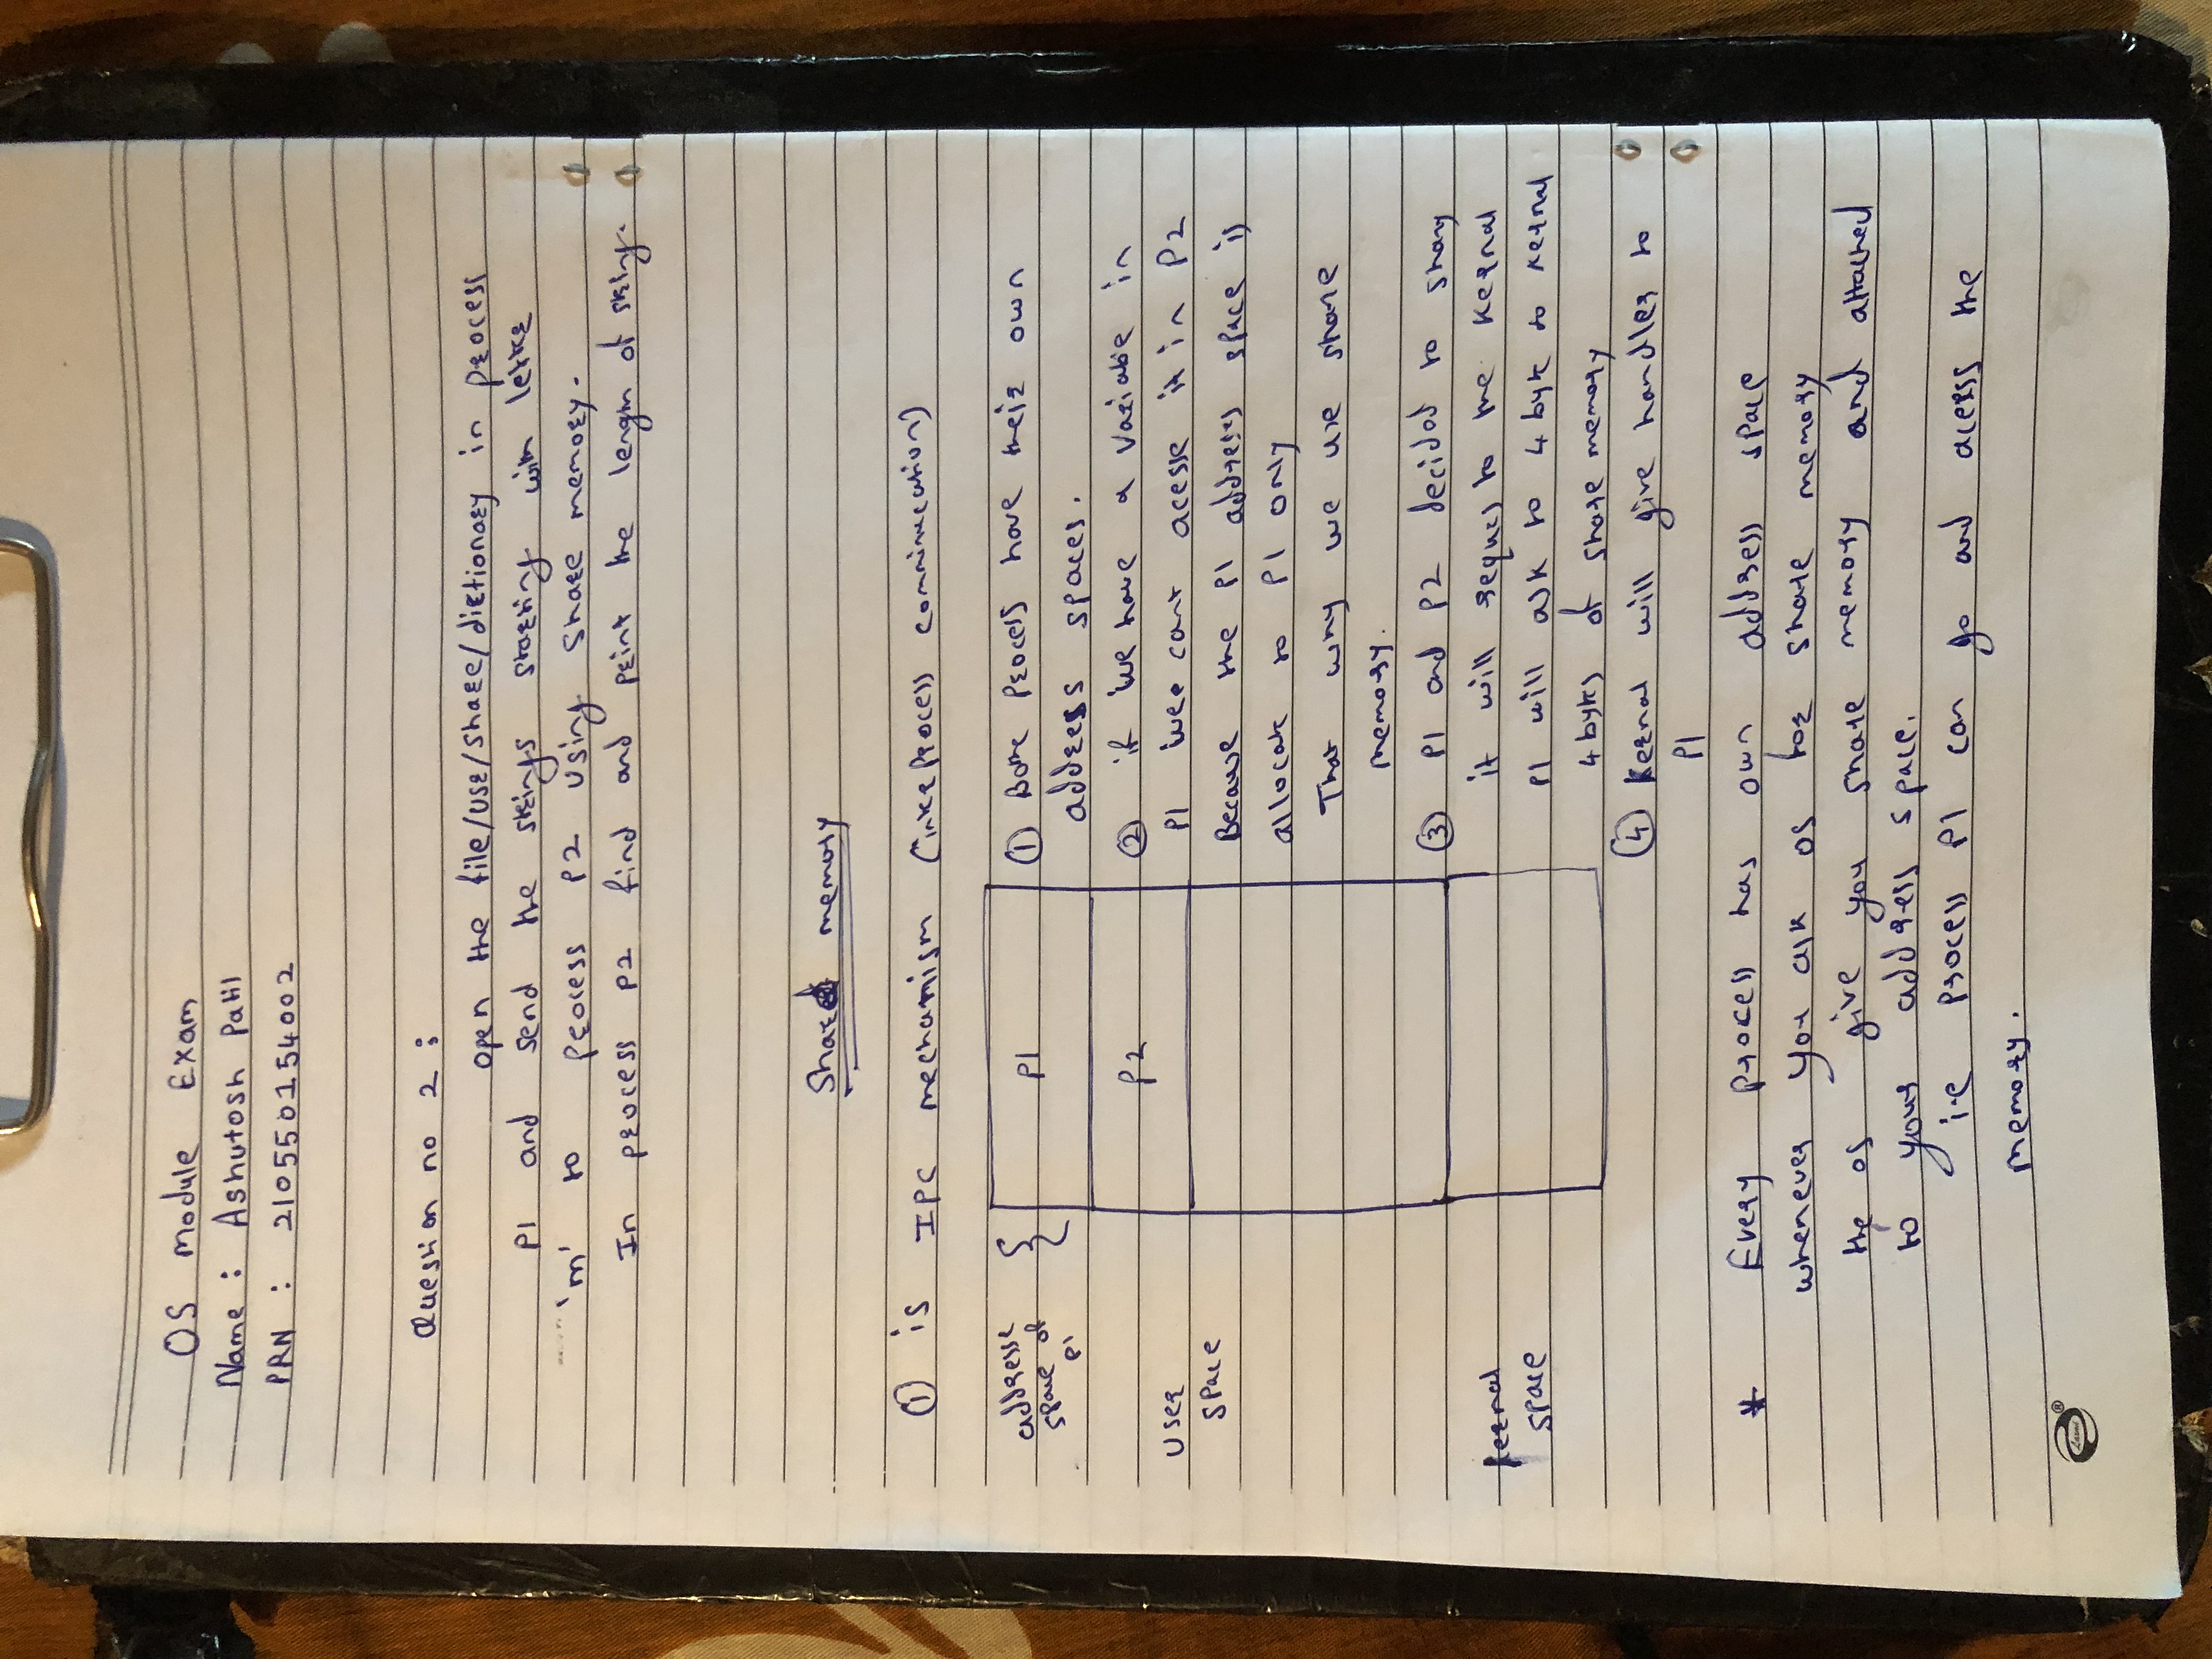 OS module Exam
Name : Ashutosh Patil
PRN : 210550154002
Question no 2 :
open the file/usr/share/dictionary in process
P1 and send the strings starting with letter
'm' to process P2 using share memory.
In process P2 find and print the length of string.
Shared memory
① is IPC mechanism (interprocess communication)
addresse
space of
P1
P1
P2
User
space
kernal
space
① Bothe Process have their own
address spaces.
② if we have a variable in
P1 wee cant acesse it in P2
Because the P1 address space is
allocate to P1 only
That why we use share
memory.
③ P1 and P2 decided to share
it will reques to the kernal
P1 will ask to 4 byte to kernal
4 bytes of share memory
④ kernal will give handler to
P1
* Every process has own address space
whenever you ask os for share memory
the os give you share memory and attached
to your address space.
i.e process P1 can go and acerss the
memory.
Laxmi ®